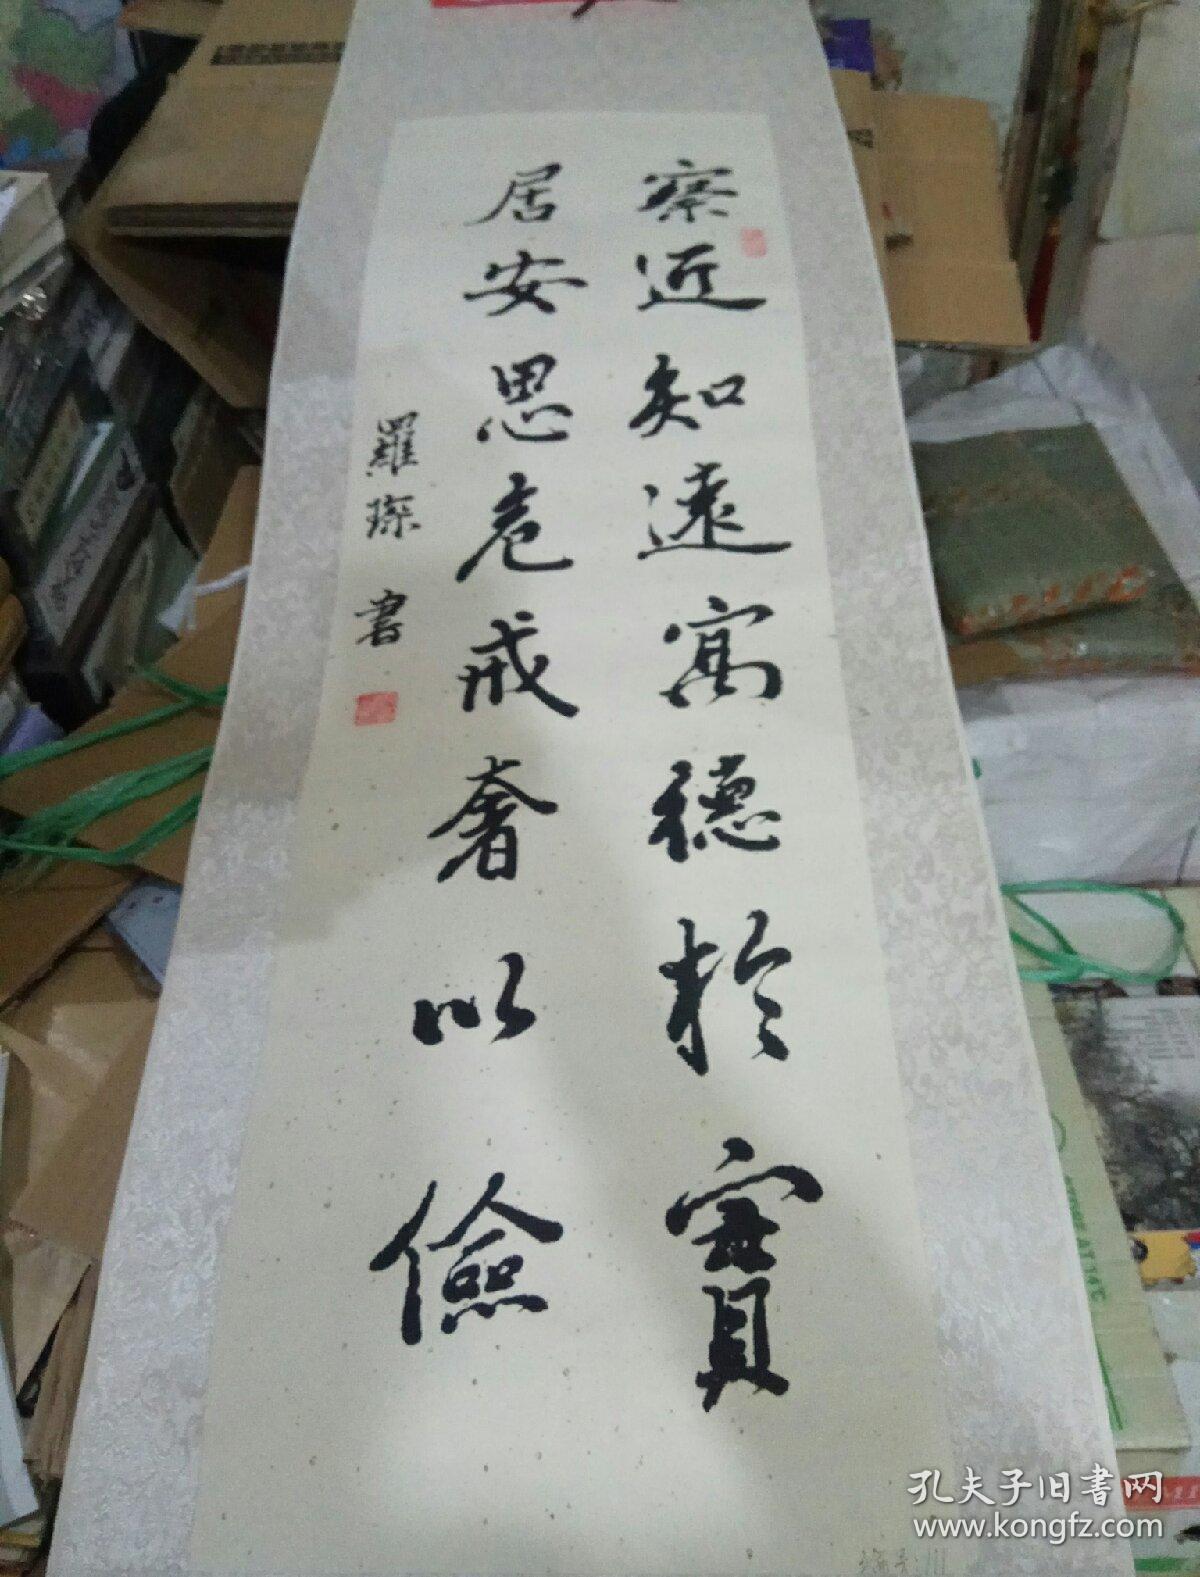 察近知遠寓德於寶
居安思危戒奢以儉
羅琛書
孔夫子旧書网
www.kongfz.com